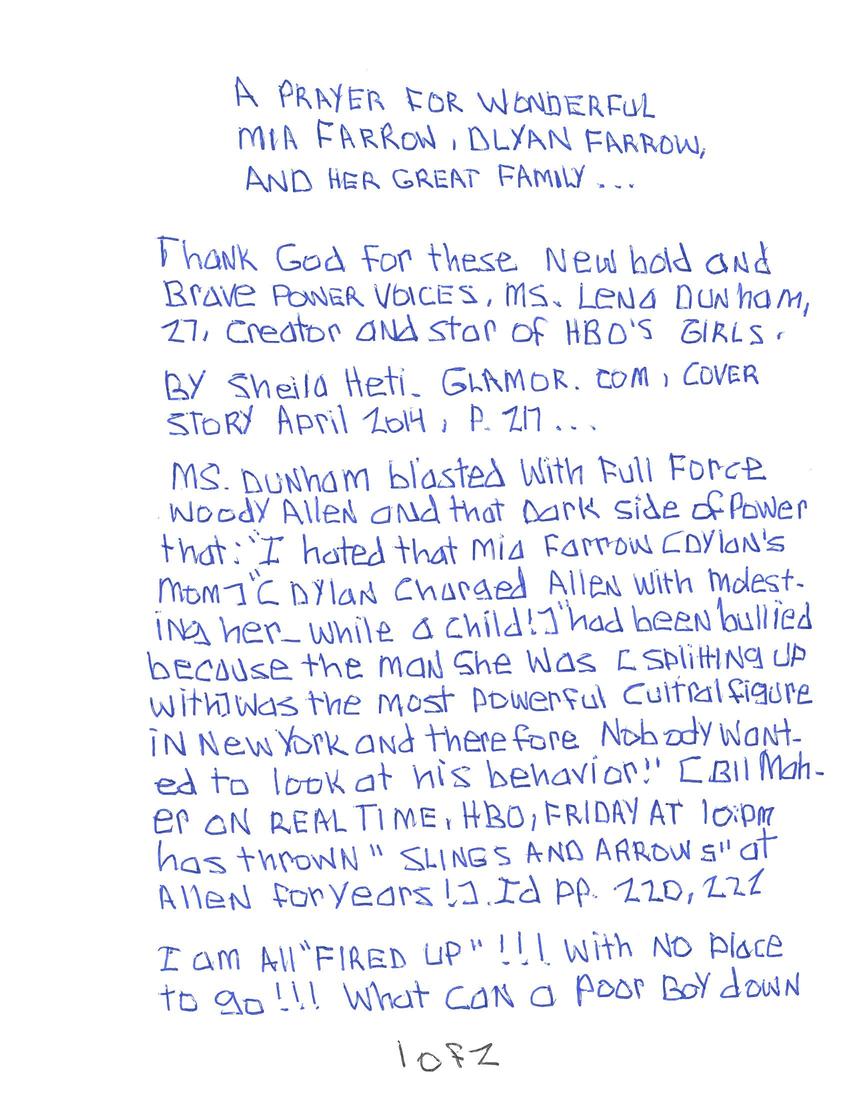 A PRAYER FOR WONDERFUL
MIA FARROW, DLYAN FARROW,
AND HER GREAT FAMILY...
Thank God For these New bold and
Brave POWER VOICES, MS. Lena DUNham,
27, Creator and star of HBO'S GIRLS.
BY Sheila Heti. GLAMOR.COM, COVER
STORY April 2014, P. 217...
MS. DUNham blasted With Full Force
Woody Allen and that Dark side of Power
that: "I hated that Mia Farrow [Dylan's
Mom]" [Dylan Charged Allen with molest-
ing her_ while a child!] "had been bullied
because the man she was [splitting up
with] was the most powerful Cultral figure
in New York and therefore Nobody want-
ed to look at his behavior!" [Bill Mah-
er ON REAL TIME, HBO, FRIDAY AT 10:pm
has thrown "SLINGS AND ARROWS" at
Allen for years!]. Id pp. 220, 222
I am All "FIRED UP"!!! With NO place
to go!!! What CAN a Poor Boy down
1 of 2